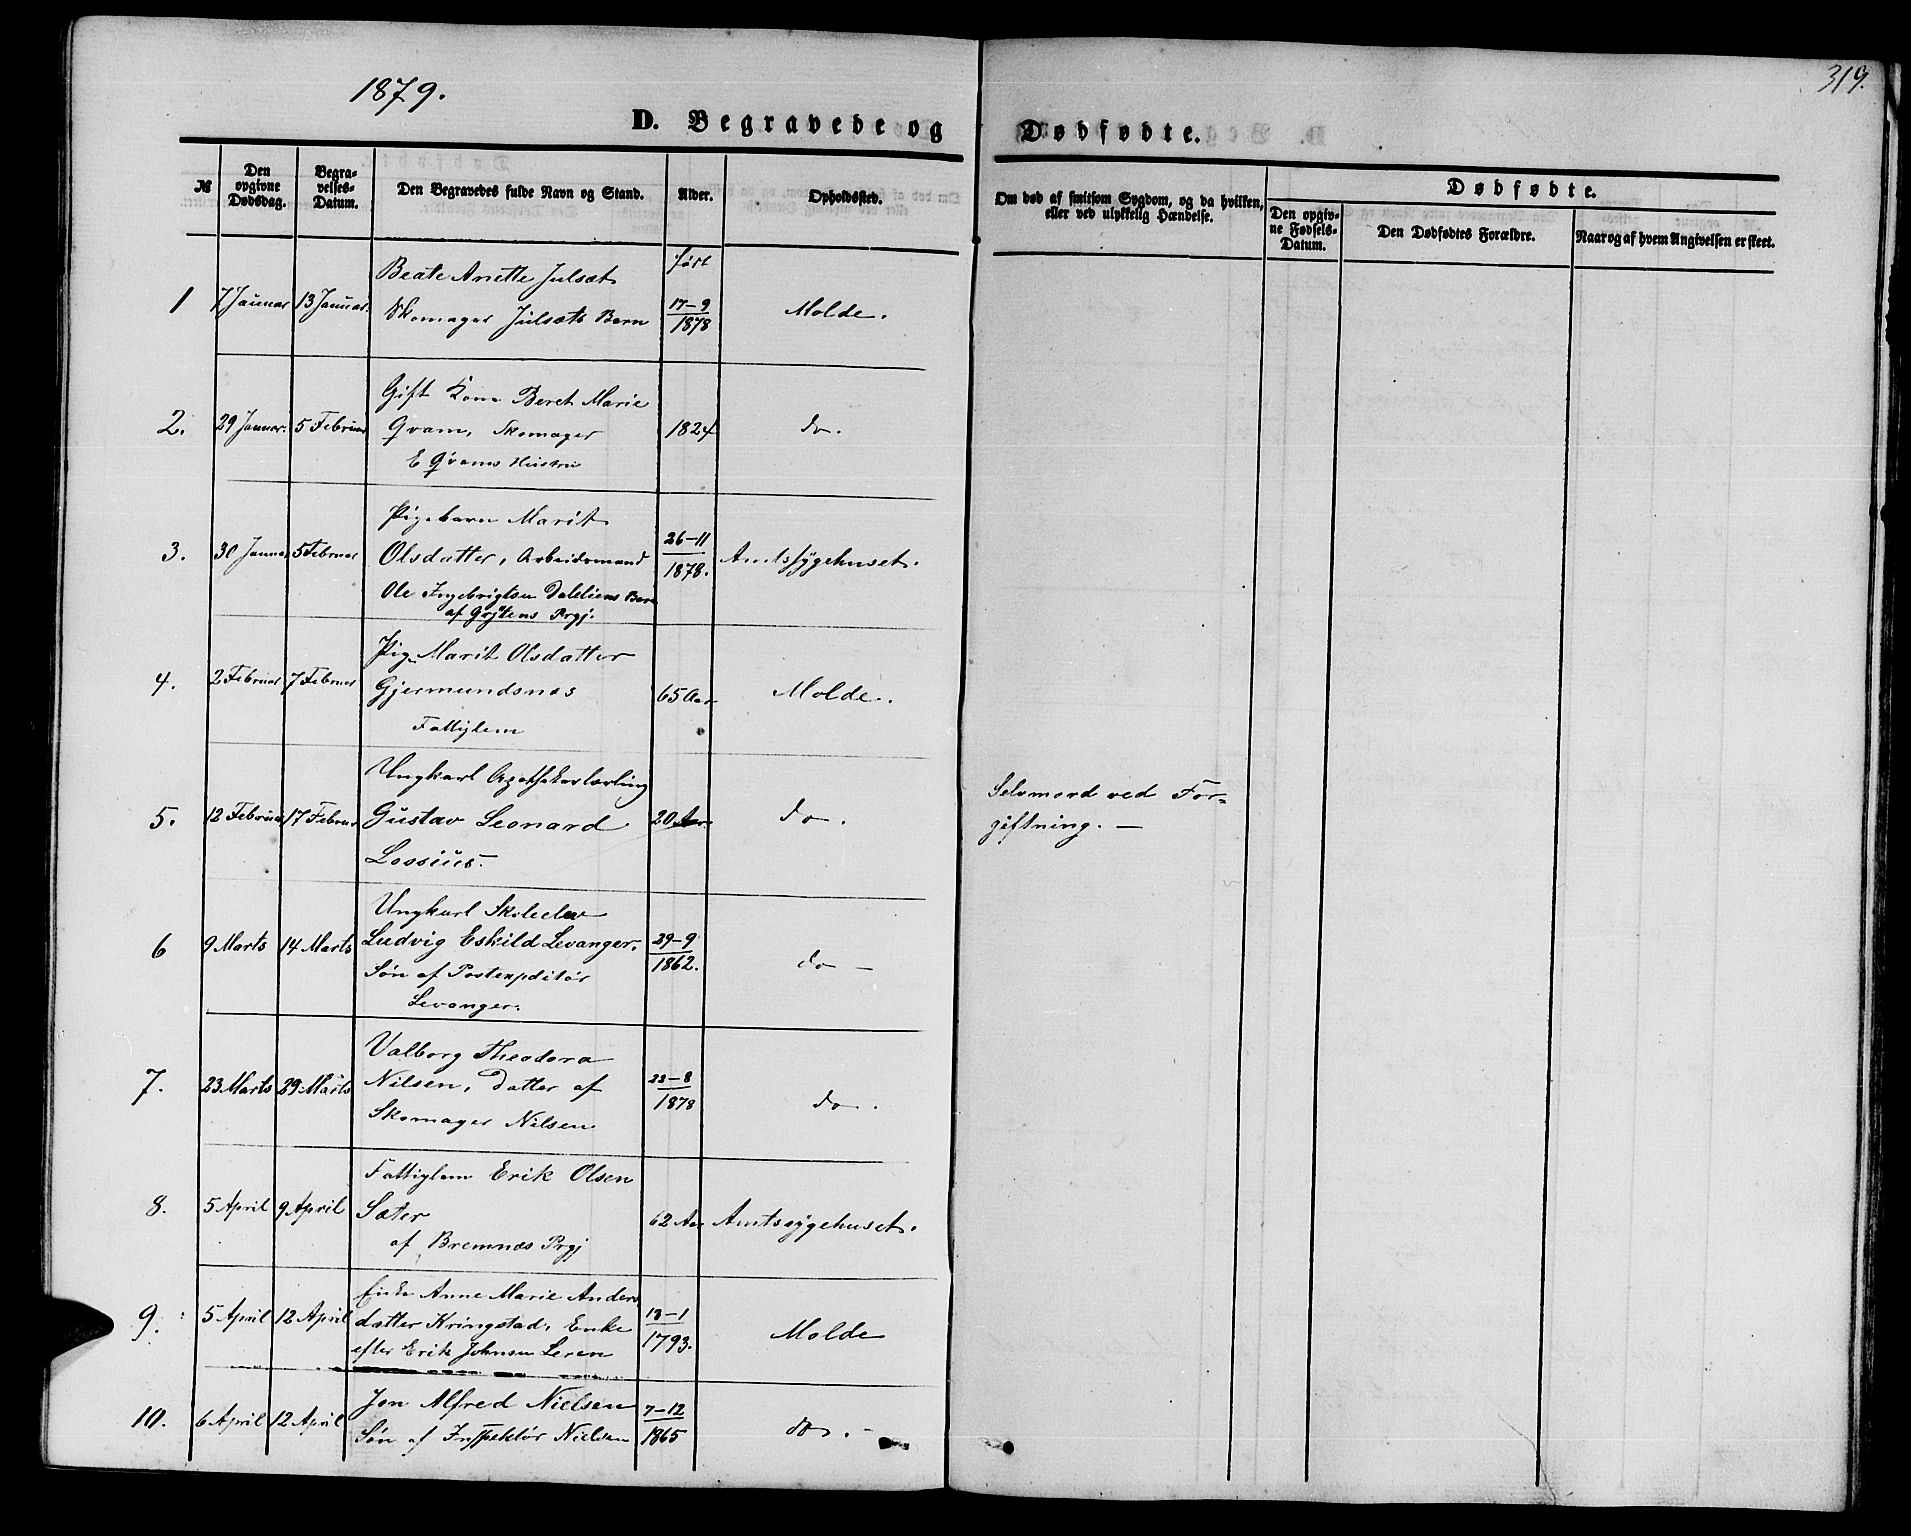 1879.
319.
D. Begravede og Dødfødte.
№
Den opgivne Dødsdag.
Begravelses-Datum.
Den Begravedes fulde Navn og Stand.
Alder.
Opholdssted.
Om død af smitsom Sygdom, og da hvilken, eller ved ulykkelig Hændelse.
Dødfødte.
Den opgivne Fødsels-Datum.
Den Dødfødtes Forældre.
Naar og af hvem Angivelsen er skeet.
født
Beate Anette Julsæt
1 7 Januar 13 Januar. Skomager Julsæts Barn 17-9 1878 Molde.
Gift Kone Beret Marie
2. 29 Januar. 5 Februar Qvam, Skomager 1824 do.
E Qvams Hustru
Pigebarn Marit
3. 30 Januar 5 Februar Olsdatter, Arbeidsmand 26-11 1878. Amtssygehuset.
Ole Ingebrigtsen Daleliens Barn
af Grytens Prgj.
Pige Marit Olsdatter
4. 2 Februar 7 Februar Gjermundsnes 65 Aar Molde.
Fattiglem
Ungkarl Apothekerlærling
5. 12 Februar 17 Februar Gustav Leonard 20 Aar do.
Lossius.
Selvmord ved For-
giftning. —
Ungkarl Skoleelev
6 9 Marts 14 Marts Ludvig Eskild Levanger. 29-9 1862. do —
Søn af Postexpditør
Levanger.
Valborg Theodora
7. 23 Marts 29 Marts Nilsen, Datter af 22-8 1878 do.
Skomager Nilsen
Fattiglem Erik Olsen
8. 5 April 9 April Sæter 62 Aar Amtssygehuset.
af Bremnæs Prgj
Enke Anne Marie Anders
9. 5 April 12 April datter Kringstad, Enke 13-1 1793. Molde
efter Erik Johnsen Leren
Jon Alfred Nielsen
10. 6 April 12 April Søn af Inspektør Nielsen 7-12 1865 do. —